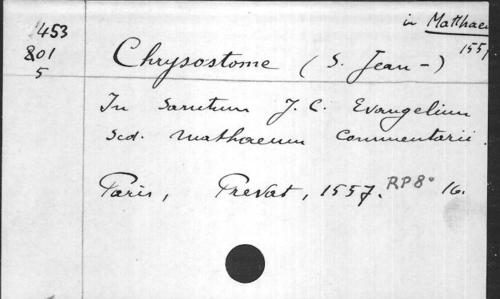 in Matthaeu
453
1557
801
Chrysostome ( S. Jean - )
5
In Sanctum J. C. Evangelium
Scd. Mathaeum Commentarii.
Paris, Prevat, 1557. RP8° 16.